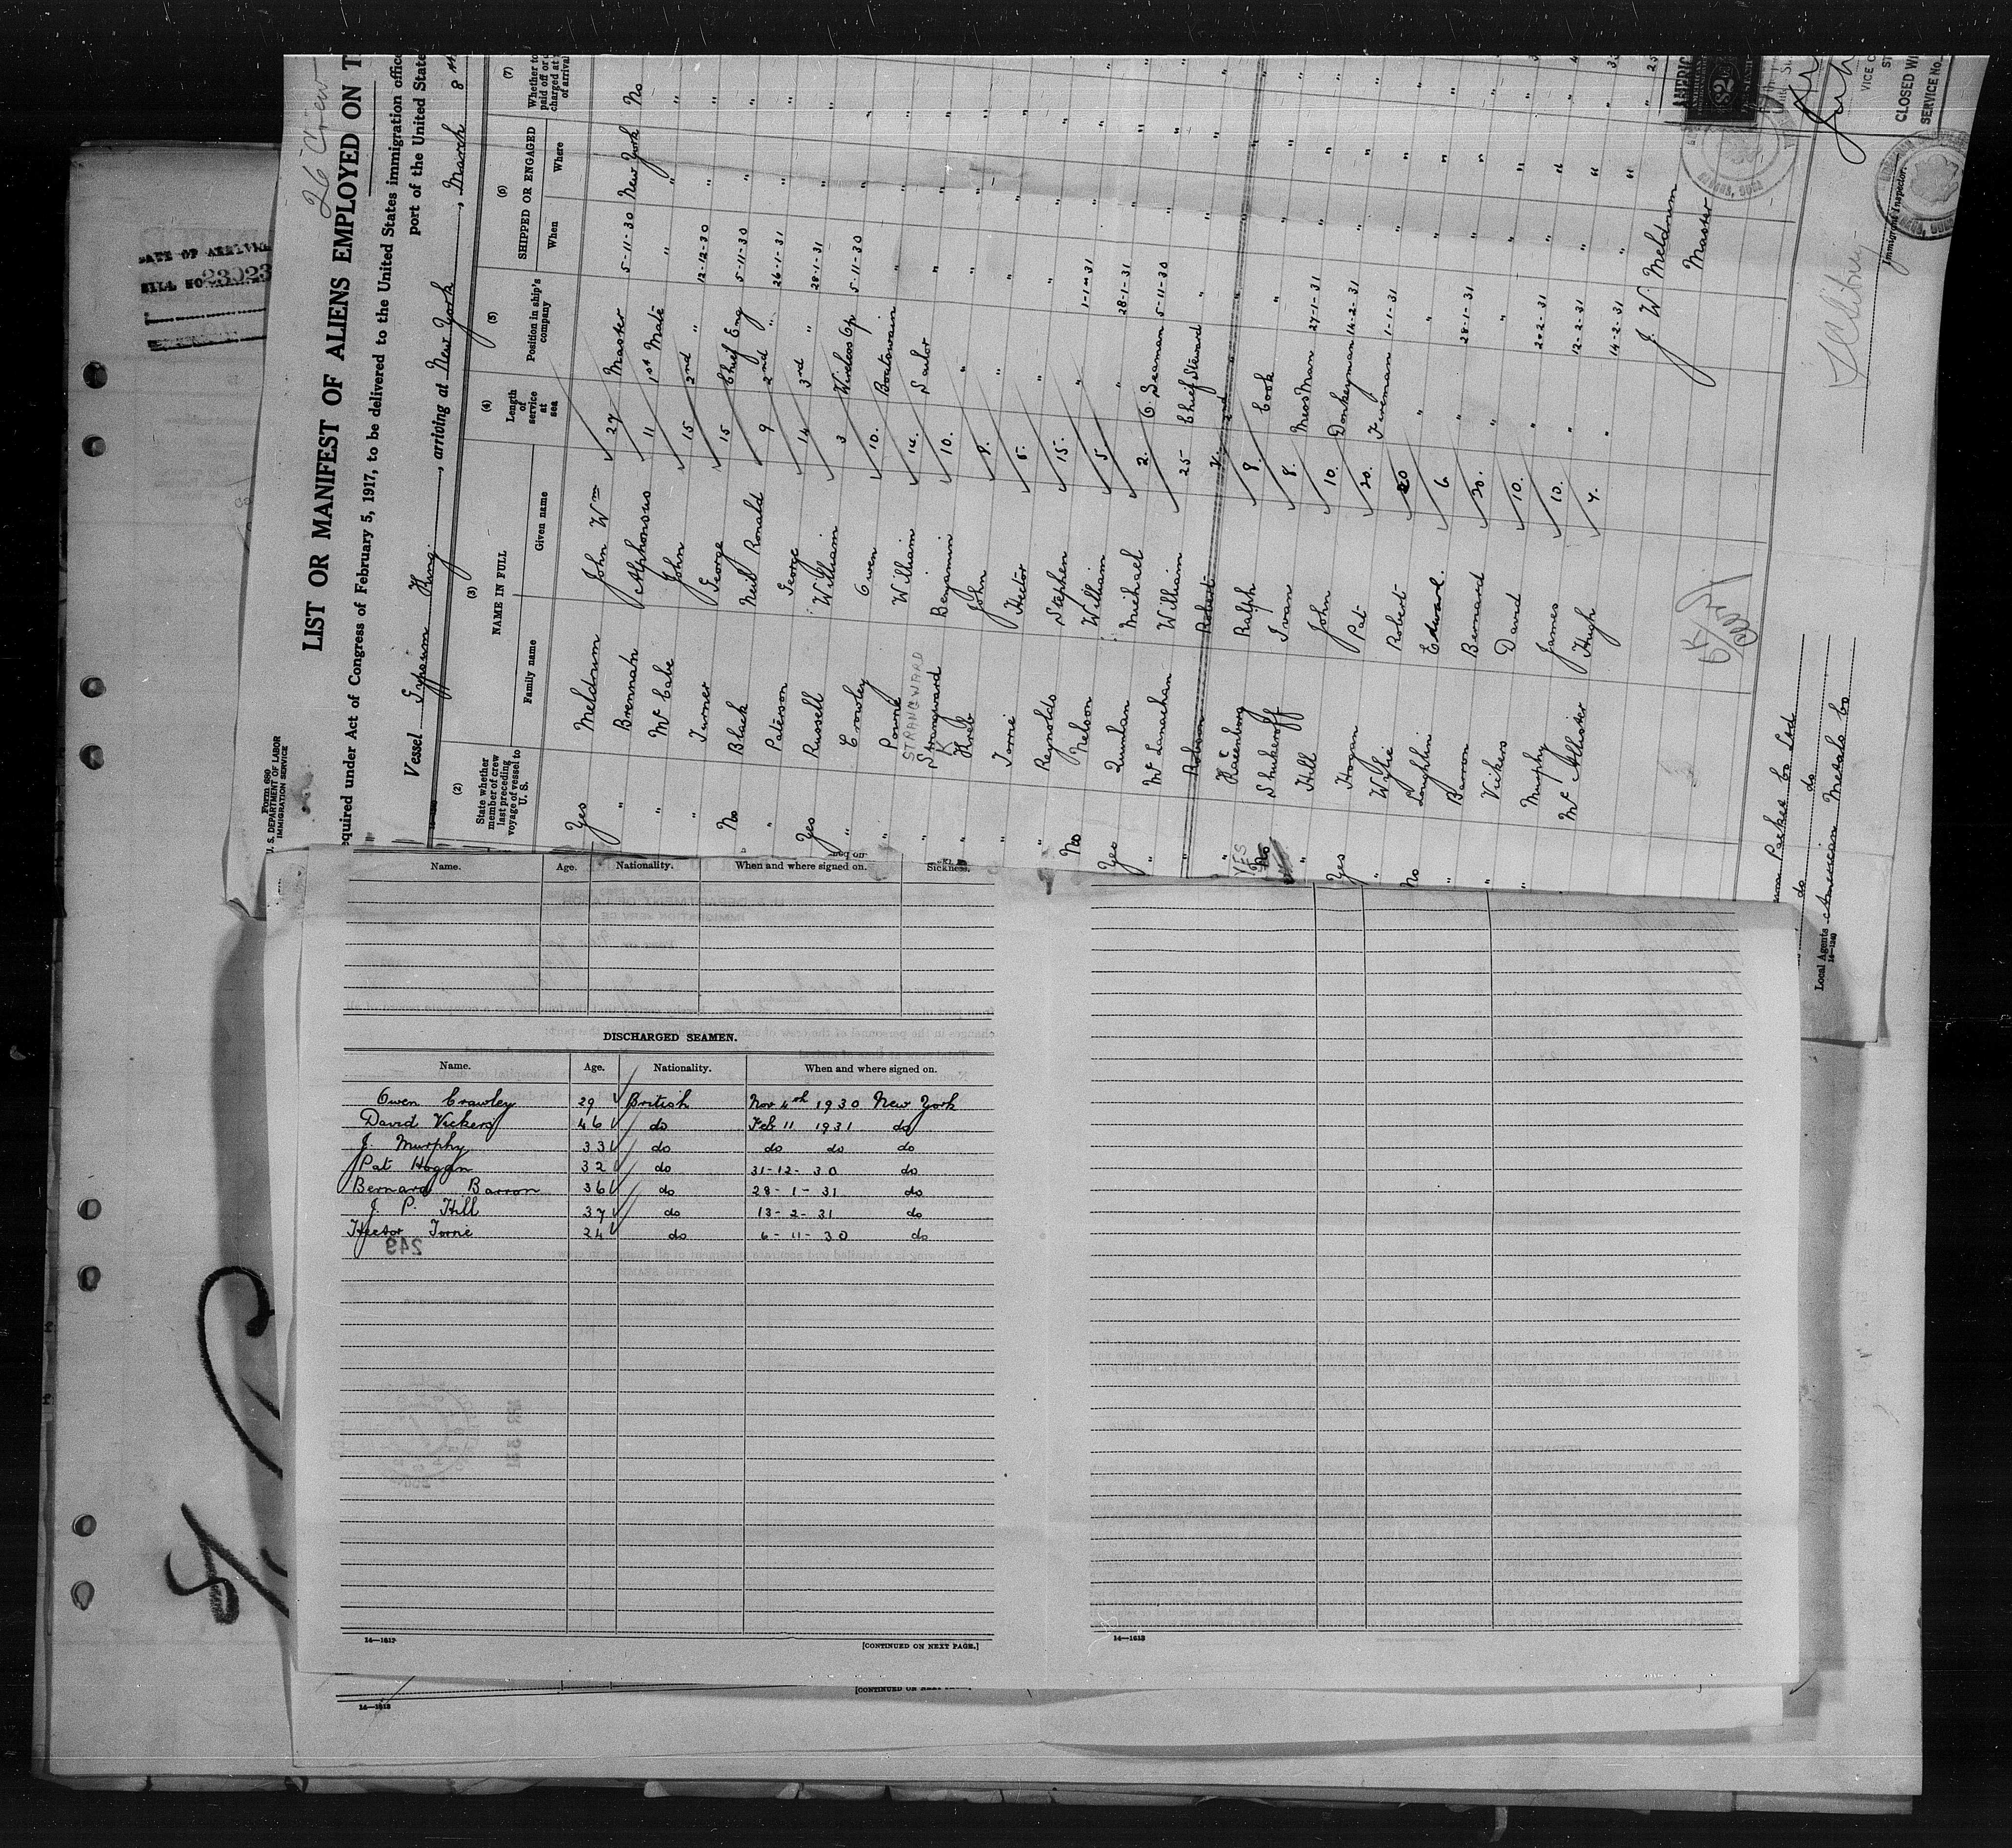 26 Crew
LIST OR MANIFEST OF ALIENS EMPLOYED ON T
equired under Act of Congress of February 5, 1917, to be delivered to the United States immigration office
port of the United State
Vessel Gypsum King, arriving at New York, March 8th
Form 680
U. S. DEPARTMENT OF LABOR
IMMIGRATION SERVICE
(2) (3) (4) (5) (6) (7)
State whether member of crew last preceding voyage of vessel to U. S.
NAME IN FULL
Family name Given name
Length of service at sea
Position in ship's company
SHIPPED OR ENGAGED
When Where
Whether to paid off or charged at of arrival
Yes Meldrum John Wm 27 Master 5-11-30 New York No
" Brennan Alphonsus 11 1st Mate " " "
" McCabe John 15 2nd " 12-12-30 " "
" Turner George 15 Chief Eng 5-11-30 " "
No Black Neil Ronald 9 2nd " 26-1-31 " "
" Paterson George 14 3rd " 28-1-31 " "
Yes Russell William 3 Wireless Op 5-11-30 " "
" Crowley Owen 10. Boatswain " " "
" William 14. Sailor " " "
STRANGWARD
" Strangward Benjamin 10. " " " "
" Kreb John 9. " " " "
" Torrie Hector 5. " " " "
" Reynolds Stephen 15. " 1-1-31 " "
No Nelson William 5 " 28-1-31 " "
Yes Michael 2. O. Seaman 5-11-30 " "
" McLanachan William 25 Chief Steward " " "
" Robson Robert 2nd
" Ralph 9. Cook " " "
YES No Shukeroff Ivan 8. Mess Man 27-1-31 " "
" Hill John 10. Donkeyman 14-2-31 " "
Yes Hogan Pat 20. Fireman 1-1-31 " "
" Wylie Robert 20 " " " "
No Loughlin Edward. 6 " 28-1-31 " "
" Barron Bernard 30. " " " "
" Vickers David 10. " 20-2-31 " "
" Murphy James 10. " 12-2-31 " "
McAllister Hugh 7. " 14-2-31 " "
J. W. Meldrum
Master
Immigrant Inspector.
VICE C
CLOSED WI
SERVICE No.
OK
Packet Co Ltd
do do
Local Agents American Metals Co
14—1240
DATE OF ARRIVAL
BILL NO 23023
Name. Age. Nationality. When and where signed on. Sickness.
DISCHARGED SEAMEN.
Name. Age. Nationality. When and where signed on.
Owen Crawley 29 British Nov 4th 1930 New York
David Vickers 46 do Feb 11 1931 do
J. Murphy 33 do do do do
Pat Hoggan 32 do 31-12-30 do
Bernard Barron 36 do 28-1-31 do
J. P. Hill 37 do 13-2-31 do
Hector Torrie 24 do 6-11-30 do
249
14—1617 [CONTINUED ON NEXT PAGE.]
14—1618
[CONTINUED ON NEXT PAGE.]
14—1618